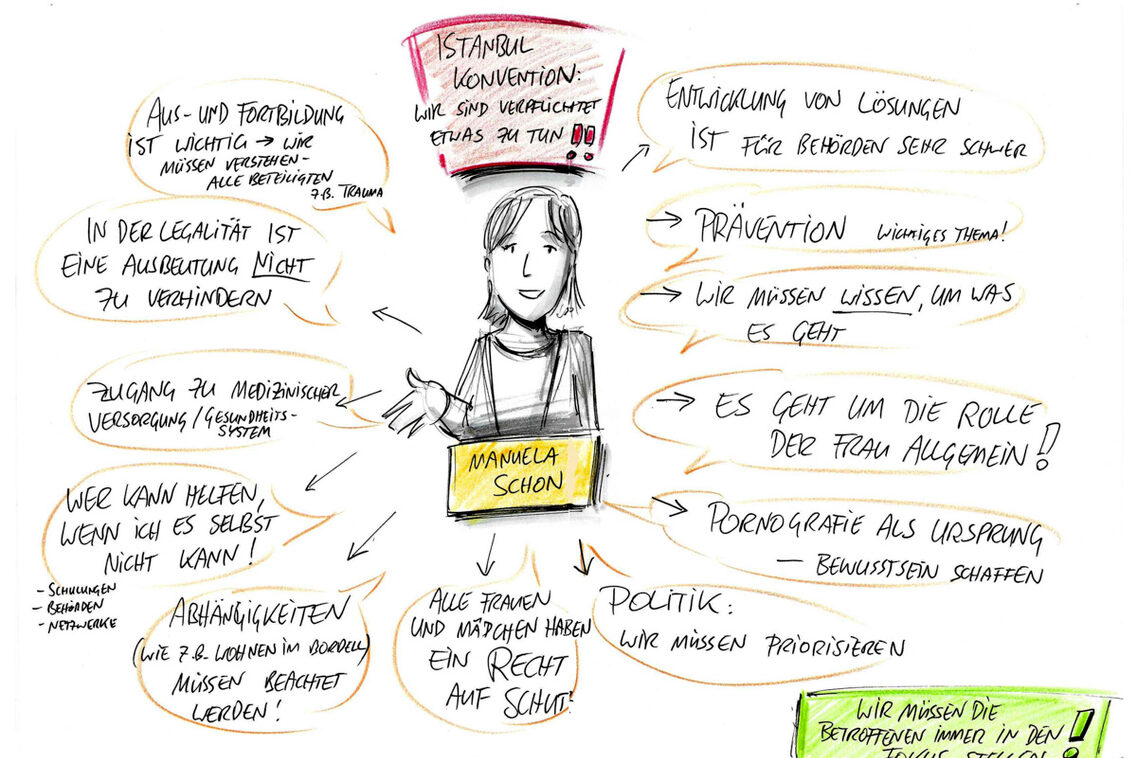 ISTANBUL
KONVENTION:
WIR SIND VERPFLICHTET
ETWAS ZU TUN!!
AUS- UND FORTBILDUNG
IST WICHTIG → WIR
MÜSSEN VERSTEHEN -
ALLE BETEILIGTEN
z.B. TRAUMA
IN DER LEGALITÄT IST
EINE AUSBEUTUNG NICHT
ZU VERHINDERN
ZUGANG ZU MEDIZINISCHER
VERSORGUNG/GESUNDHEITS-
SYSTEM
WER KANN HELFEN,
WENN ICH ES SELBST
NICHT KANN!
- SCHULUNGEN
- BEHÖRDEN
- NETZWERKE
ABHÄNGIGKEITEN
(WIE z.B. WOHNEN IM BORDELL)
MÜSSEN BEACHTET
WERDEN!
MANUELA
SCHON
ALLE FRAUEN
UND MÄDCHEN HABEN
EIN RECHT
AUF SCHUTZ!
ENTWICKLUNG VON LÖSUNGEN
IST FÜR BEHÖRDEN SEHR SCHWER
→ PRÄVENTION WICHTIGES THEMA!
→ WIR MÜSSEN WISSEN, UM WAS
ES GEHT
→ ES GEHT UM DIE ROLLE
DER FRAU ALLGEMEIN!
→ PORNOGRAFIE ALS URSPRUNG
— BEWUSSTSEIN SCHAFFEN
POLITIK:
WIR MÜSSEN PRIORISIEREN
WIR MÜSSEN DIE
BETROFFENEN IMMER IN DEN
FOKUS STELLEN!